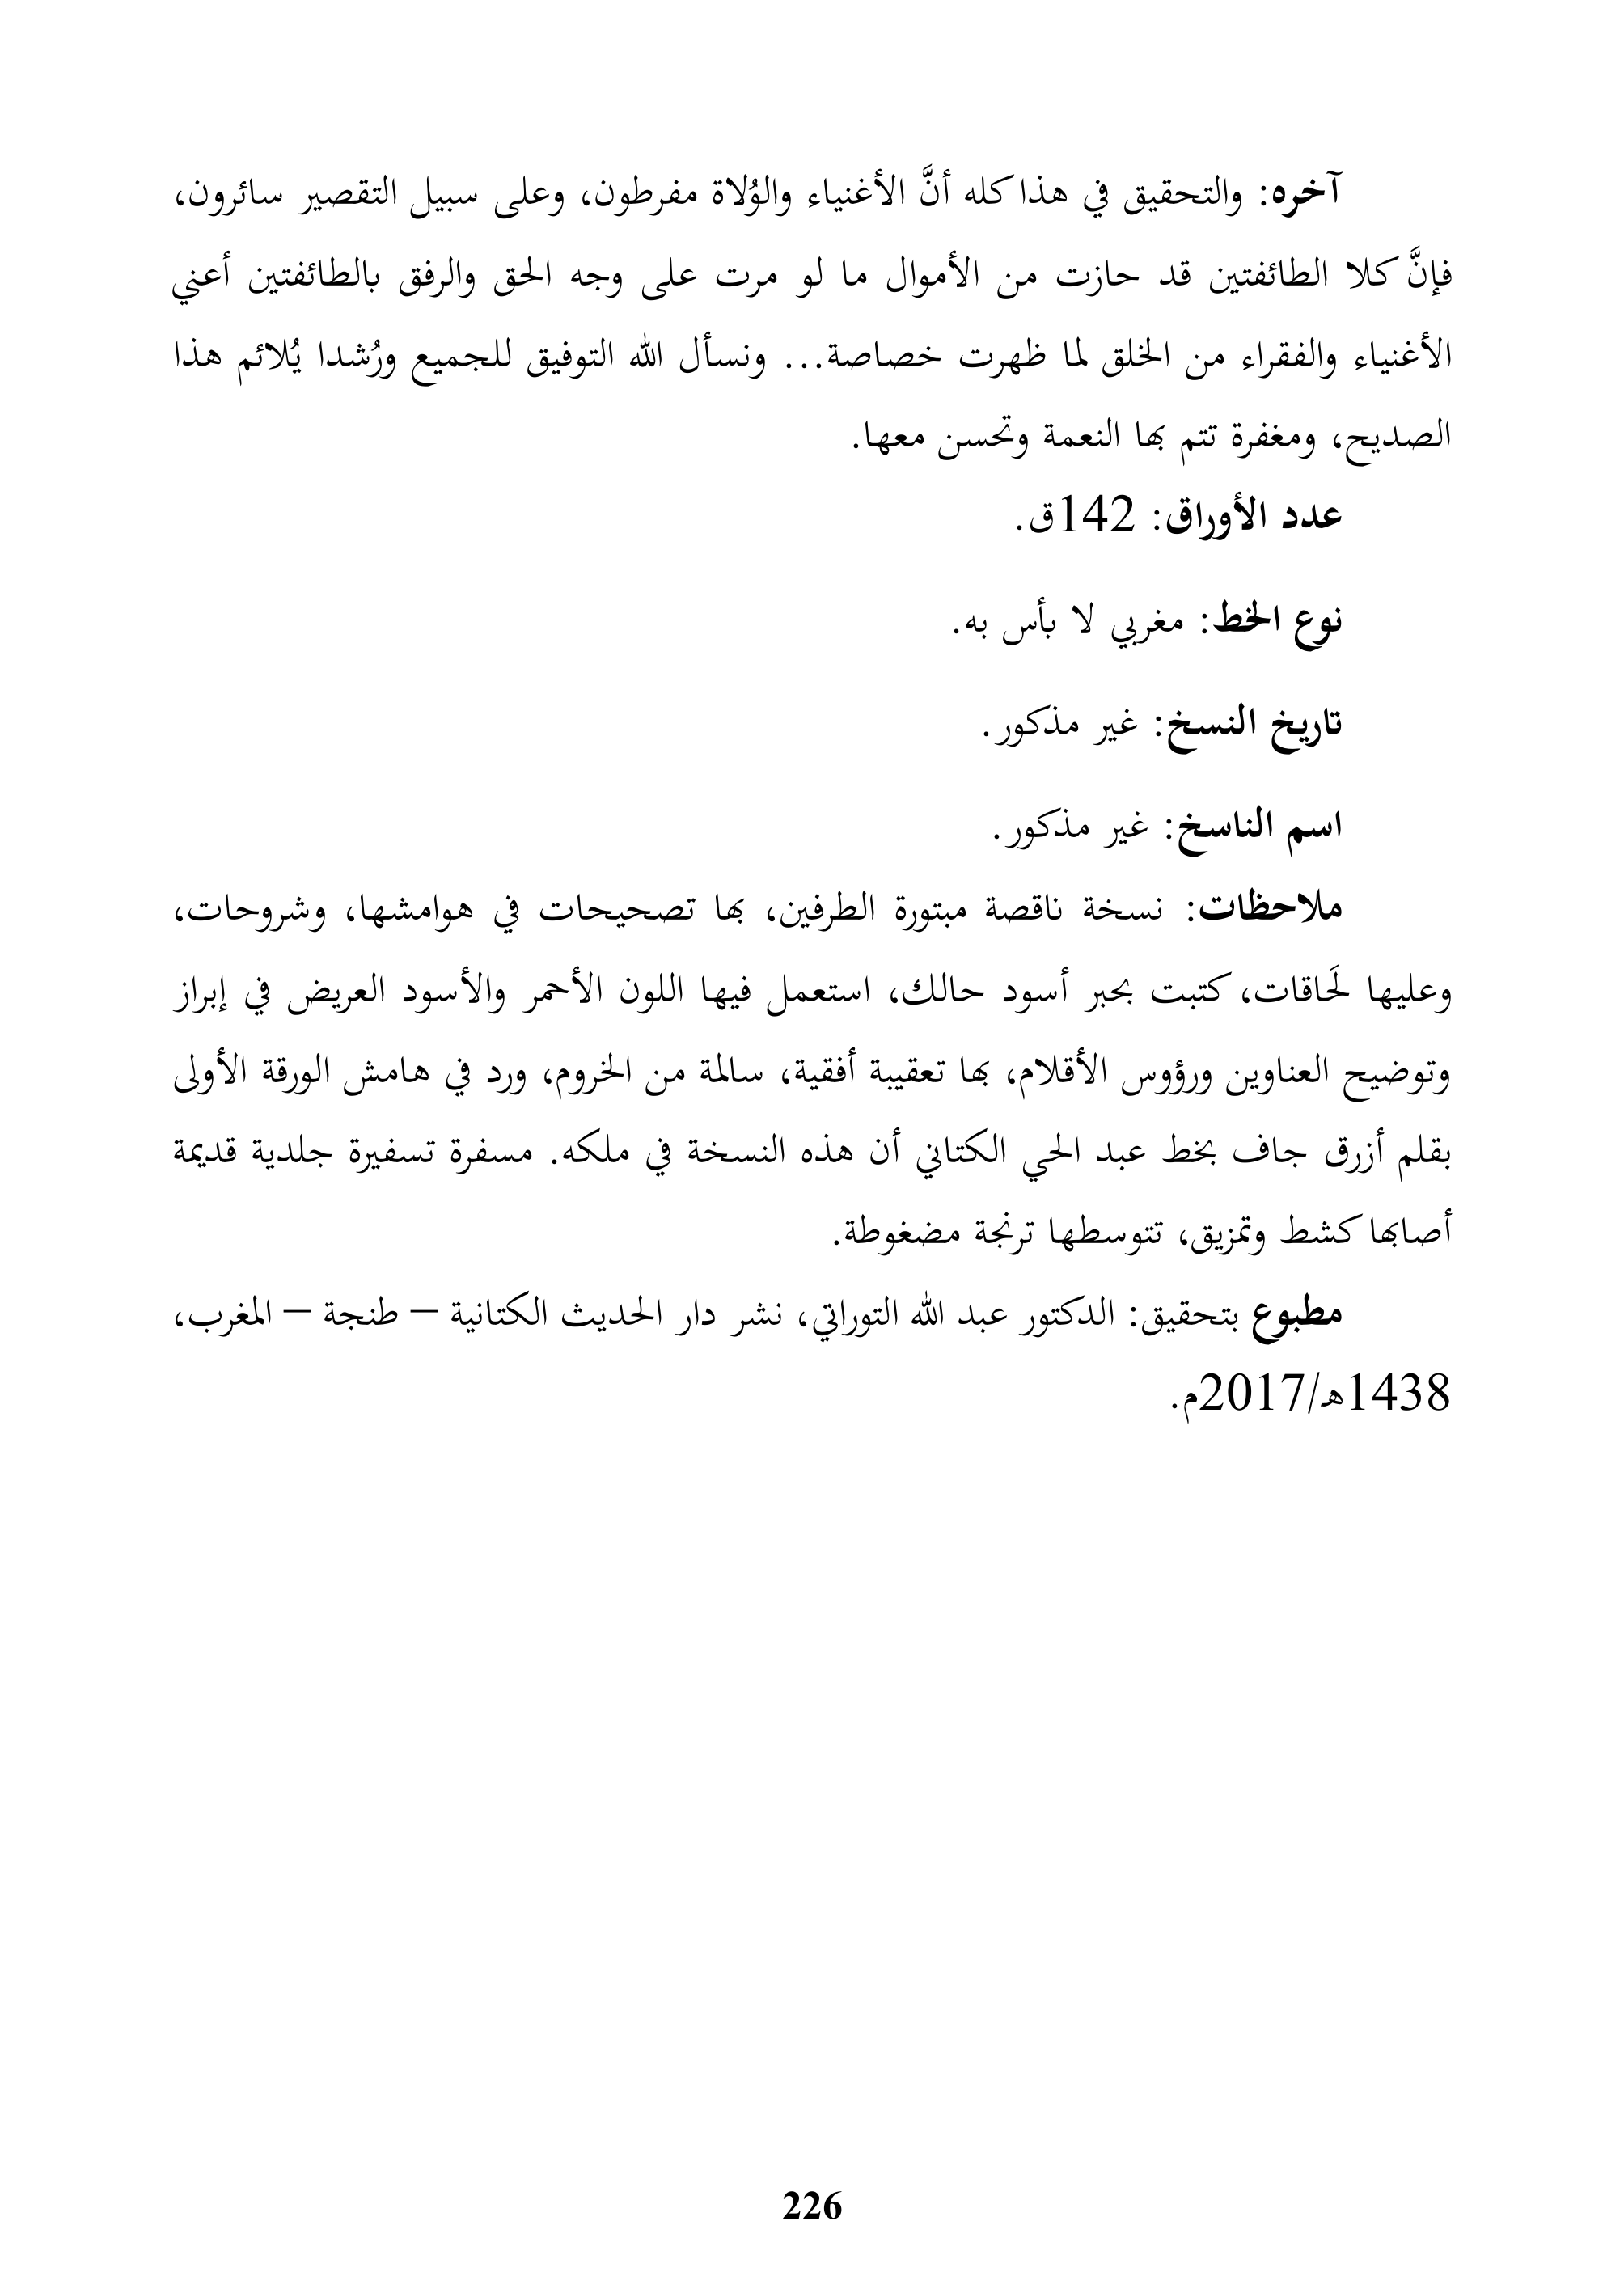 آخره: والتحقيق في هذا كله أنَّ الأغنياء والوُلاة مفرطون، وعلى سبيل التقصير سائرون،
فإنَّ كلا الطائفتين قد حازت من الأموال ما لو مرت على وجه الحق والرفق بالطائفتين أعني
الأغنياء والفقراء من الخلق لما ظهرت خصاصة... ونسأل الله التوفيق للجميع ورُشدا يُلائم هذا
الصديح، ومغفرة تتم بها النعمة وتحسن معها.
عدد الأوراق: 142ق.
نوع الخط: مغربي لا بأس به.
تاريخ النسخ: غير مذكور.
اسم الناسخ: غير مذكور.
ملاحظات: نسخة ناقصة مبتورة الطرفين، بها تصحيحات في هوامشها، وشروحات،
وعليها لَحَاقات، كتبت بحبر أسود حالك، استعمل فيها اللون الأحمر والأسود العريض في إبراز
وتوضيح العناوين ورؤوس الأقلام، بها تعقيبة أفقية، سالمة من الخروم، ورد في هامش الورقة الأولى
بقلم أزرق جاف بخط عبد الحي الكتاني أن هذه النسخة في ملكه. مسفرة تسفيرة جلدية قديمة
أصابها كشط وتمزيق، تتوسطها ترنجة مضغوطة.
مطبوع بتحقيق: الدكتور عبد الله التوراتي، نشر دار الحديث الكتانية – طنجة – المغرب،
1438ه/2017م.
226